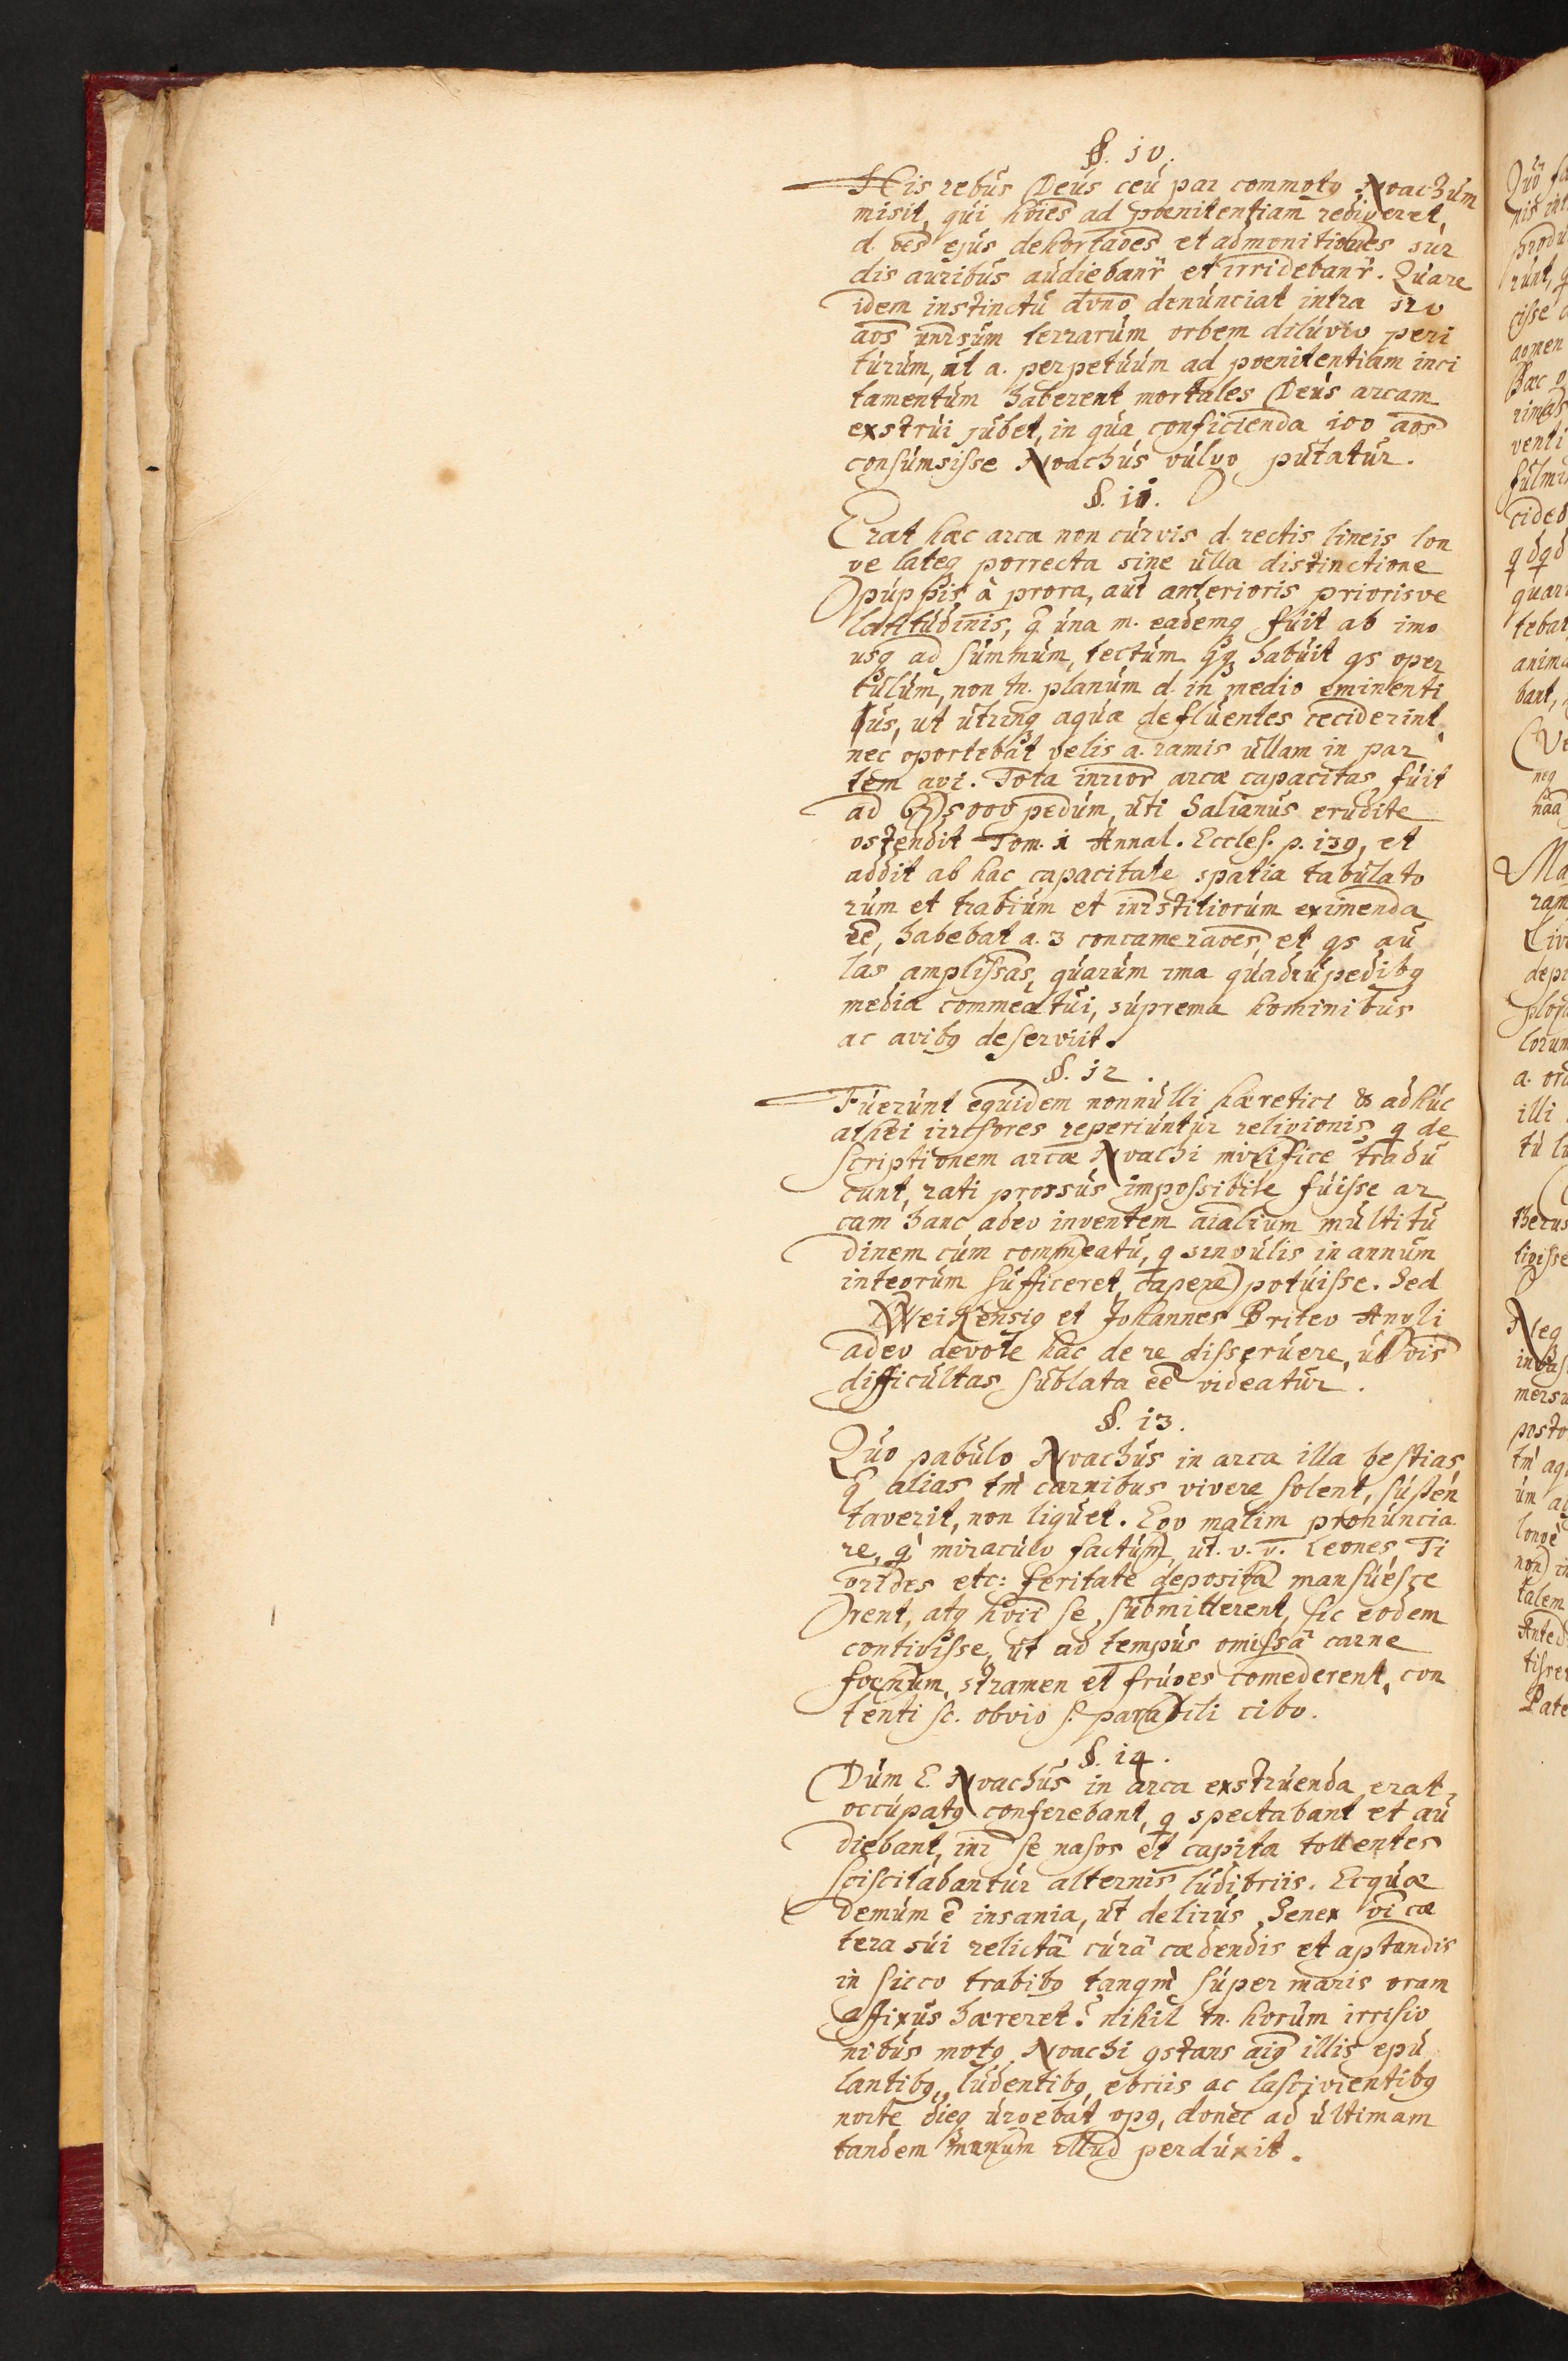 §. 10.
His rebus Deus ceu par commotq Noachum
misit, qui hoies ad poenitentiam redigeret,
d. oes ejus dehortaoes et admonitiones sur
dis auribus audiebanr et irridebanr. Quare
idem instinctu dvno denunciat intra 120
aos unrsum terrarum orbem diluvio peri
turum, ut a. perpetuum ad poenitentiam inci
tamentum haberent mortales Deus arcam
exstrui jubet, in qua conficienda 100 aos
consumsisse Noachus vulgo putatur.
§. 11.
Erat haec arca non curvis d. rectis lineis lon
ge lateq porrecta sine ulla distinctione
puppis à prora, aut anterioris priorisve
latitudinis, q una m. eademq fuit ab imo
usq ad summum, tectum qq habuit qs oper
culum, non tn. planum d. in medio eminenti
us, ut utrinq aquae defluentes ceciderint,
nec oportebat velis a. ramis ullam in par
tem agi. Tota inrior arcae capacitas fuit
ad 675000 pedum, uti Salianus erudite
ostendit Tom. 1 Annal. Eccles. p. 139, et
addit ab hac capacitate spatia tabulato
rum et trabium et inrstitiorum eximenda
ee, habebat a. 3 concameraoes, et qs au
las amplissas, quarum ima quadrupedibq
media commeatui, suprema hominibus
ac avibq deserviit.
§. 12.
Fuerunt equidem nonnulli haeretici & adhuc
athei irrisores reperiuntur religionis, q de
scriptionem arcae Noachi mirifice tradu
cunt, rati prorsus impossibile fuisse ar
cam hanc adeo ingentem aialium multitu
dinem cum commeatu, q singulis in annum
integrum sufficeret, capere potuisse. Sed
Weikensiq et Johannes Briteo Angli
adeo devote hac de re disseruere, ut ois
difficultas sublata ee videatur.
§. 13.
Quo pabulo Noachus in arca illa bestias
q alias tm carnibus vivere solent, susten
taverit, non liquet. Ego malim pronuncia
re, q miraculo factum, ut. v. g. Leones, Ti
grides etc: feritate deposita mansuesce
rent, atq hoii se submitterent, sic eodem
contigisse, ut ad tempus omissâ carne
foenum, stramen et fruges comederent, con
tenti sc. obvio s. parabili cibo.
§. 14.
Dum E. Noachus in arca exstruenda erat
occupatq conferebant, q spectabant et au
diebant, inr se nasos et capita tollentes
sciscitabantur alternis ludibriis. Ecquae
demum e insania, ut delirus Senex oi cae
tera sui relictâ curâ caedendis et aptandis
in sicco trabibq tanqm super maris oram
affixus haereret? nihil tn. horum irrisio
nibus motq Noachi qstans aiq illis epu
lantibq, ludentibq, ebriis ac lascivientibq
nocte dieq urgebat opq, donec ad ultimam
tandem manum illud perduxit.